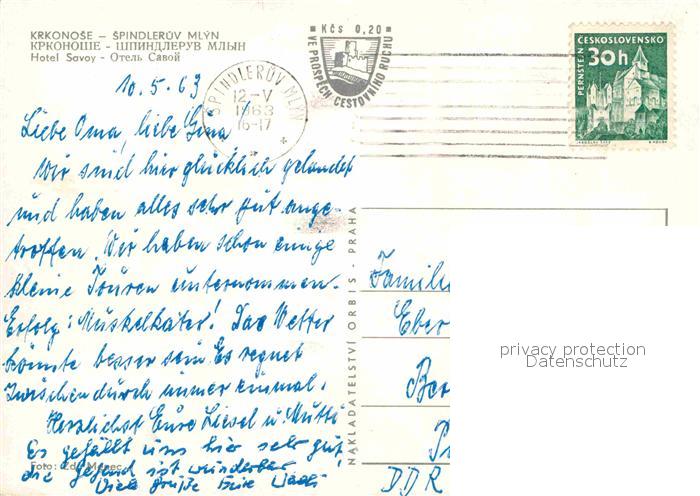 KRKONOŠE – ŠPINDLERŮV MLÝN
КРКОНОШЕ - ШПИНДЛЕРУВ МЛЫН
Hotel Savoy - Отель Савой
Kčs 0,20
VE PROSPĚCH CESTOVNÍHO RUCHU
ŠPINDLERŮV MLÝN
12.-V
1963
16-17
ČESKOSLOVENSKO
30h
PERNŠTEJN
10.5.63
Liebe Oma, liebe Gina
Wir sind hier glücklich gelandet
und haben alles sehr gut ange-
troffen. Wir haben schon einige
kleine Touren unternommen.
Erfolg: Muskelkater! Das Wetter
könnte besser sein. Es regnet
zwischendurch immer einmal.
Herzlichst Eure Liesel u. Mutti
Es gefällt uns hier sehr gut,
die Gegend ist wunderbar
Viele Grüße Eure
Foto: Zd.
NAKLADATELSTVÍ ORBIS - PRAHA
Famili
Eber
Ber
DDR
privacy protection
Datenschutz